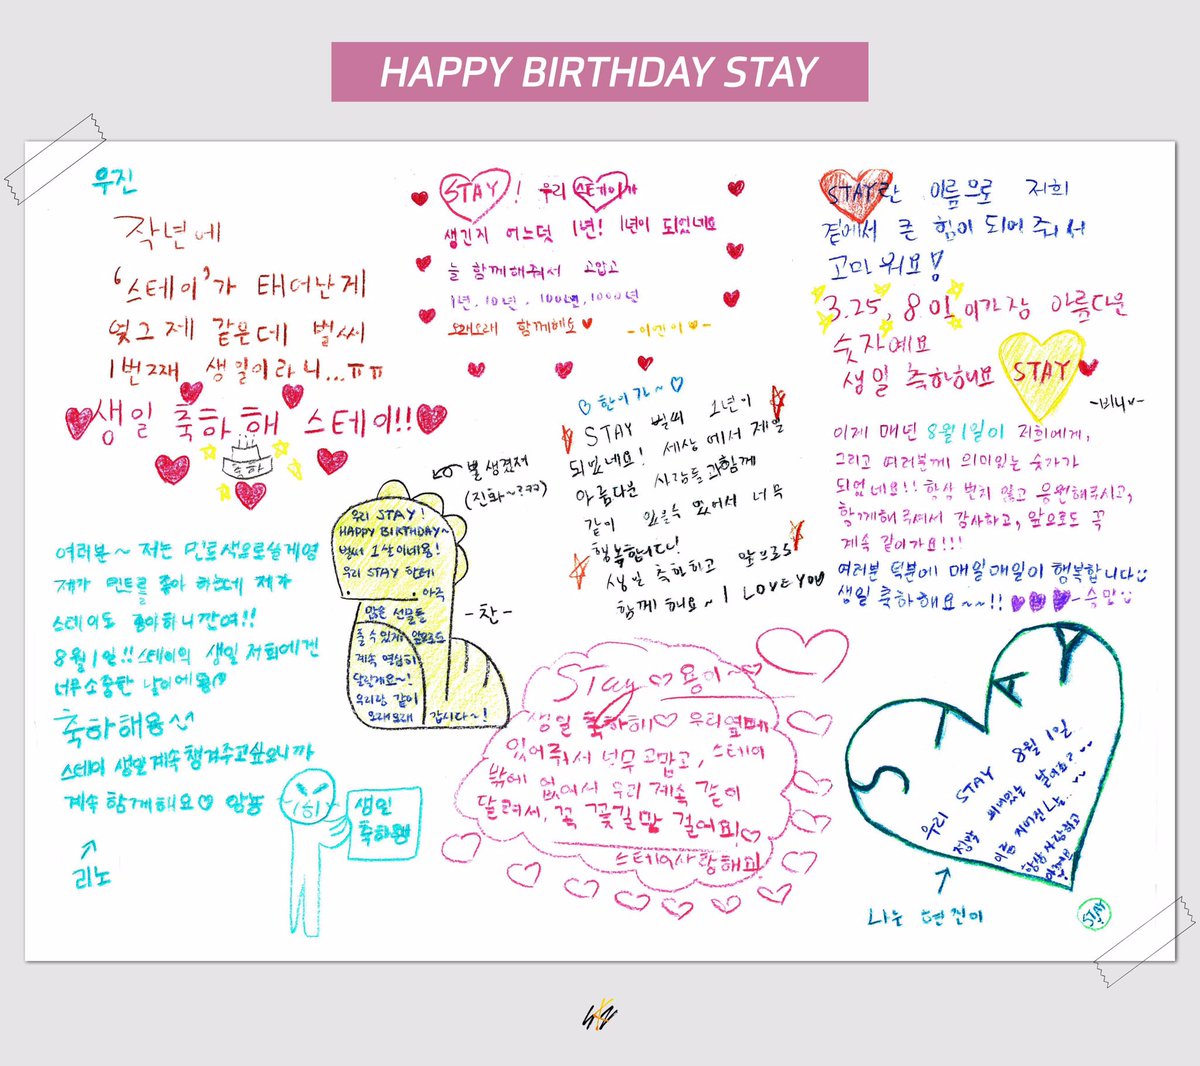 HAPPY BIRTHDAY STAY
우진
작년에
'스테이'가 태어난게
엊그제 같은데 벌써
1번째 생일이라니...ㅠㅠ
생일 축하해 스테이!!
축하
STAY! 우리 스테이가
생긴지 어느덧 1년! 1년이 되었네요
늘 함께해줘서 고맙고
1년, 10년, 100년, 1000년
오래오래 함께해요
-아이엔이-
STAY란 이름으로 저희
곁에서 큰 힘이 되어줘서
고마워요!
3.25, 8월 1일이 가장 아름다운
숫자예요
생일 축하해요 STAY
한이가~
STAY 벌써 1년이
되었네요! 세상에서 제일
아름다운 사람들과 함께
같이 있을 수 있어서 너무
행복합니다!
생일 축하하고 앞으로도
함께해요~ I LOVE YOU
뿔 생겼져
(진화~?ㅋㅋ)
우리 STAY!
HAPPY BIRTHDAY~
벌써 1살이네용!
우리 STAY 한테
아직
많은 선물들
줄 수 있게 앞으로도
계속 열심히
달릴게요~!
우리랑 같이
오래오래 갑시다~!
-찬-
이제 매년 8월 1일이 저희에게,
그리고 여러분께 의미있는 숫자가
되었네요!! 항상 변치 않고 응원해주시고,
함께해주셔서 감사하고, 앞으로도 꼭
계속 같이가요!!!
여러분 덕분에 매일매일이 행복합니다
생일 축하해요~~!! -승민
여러분~ 저는 민트색으로쓸게영
제가 민트를 좋아 하는데 제가
스테이도 좋아하니깐여!!
8월 1일!! 스테이의 생일 저희에겐
너무소중한 날이에용
축하해용^^
스테이 생일계속챙겨주고싶으니까
계속 함께해요♡
리노
생일
축하해
Stay ♡ 용이~
생일 축하해♡ 우리옆에
있어줘서 너무 고맙고, 스테이
밖에 없어서 우리 계속 같이
달려서, 꼭 꽃길만 걸어요!
스테이사랑해요!
STAY
우리 STAY 8월 1일
이름
항상 사랑하고
나는 현진이
STAY